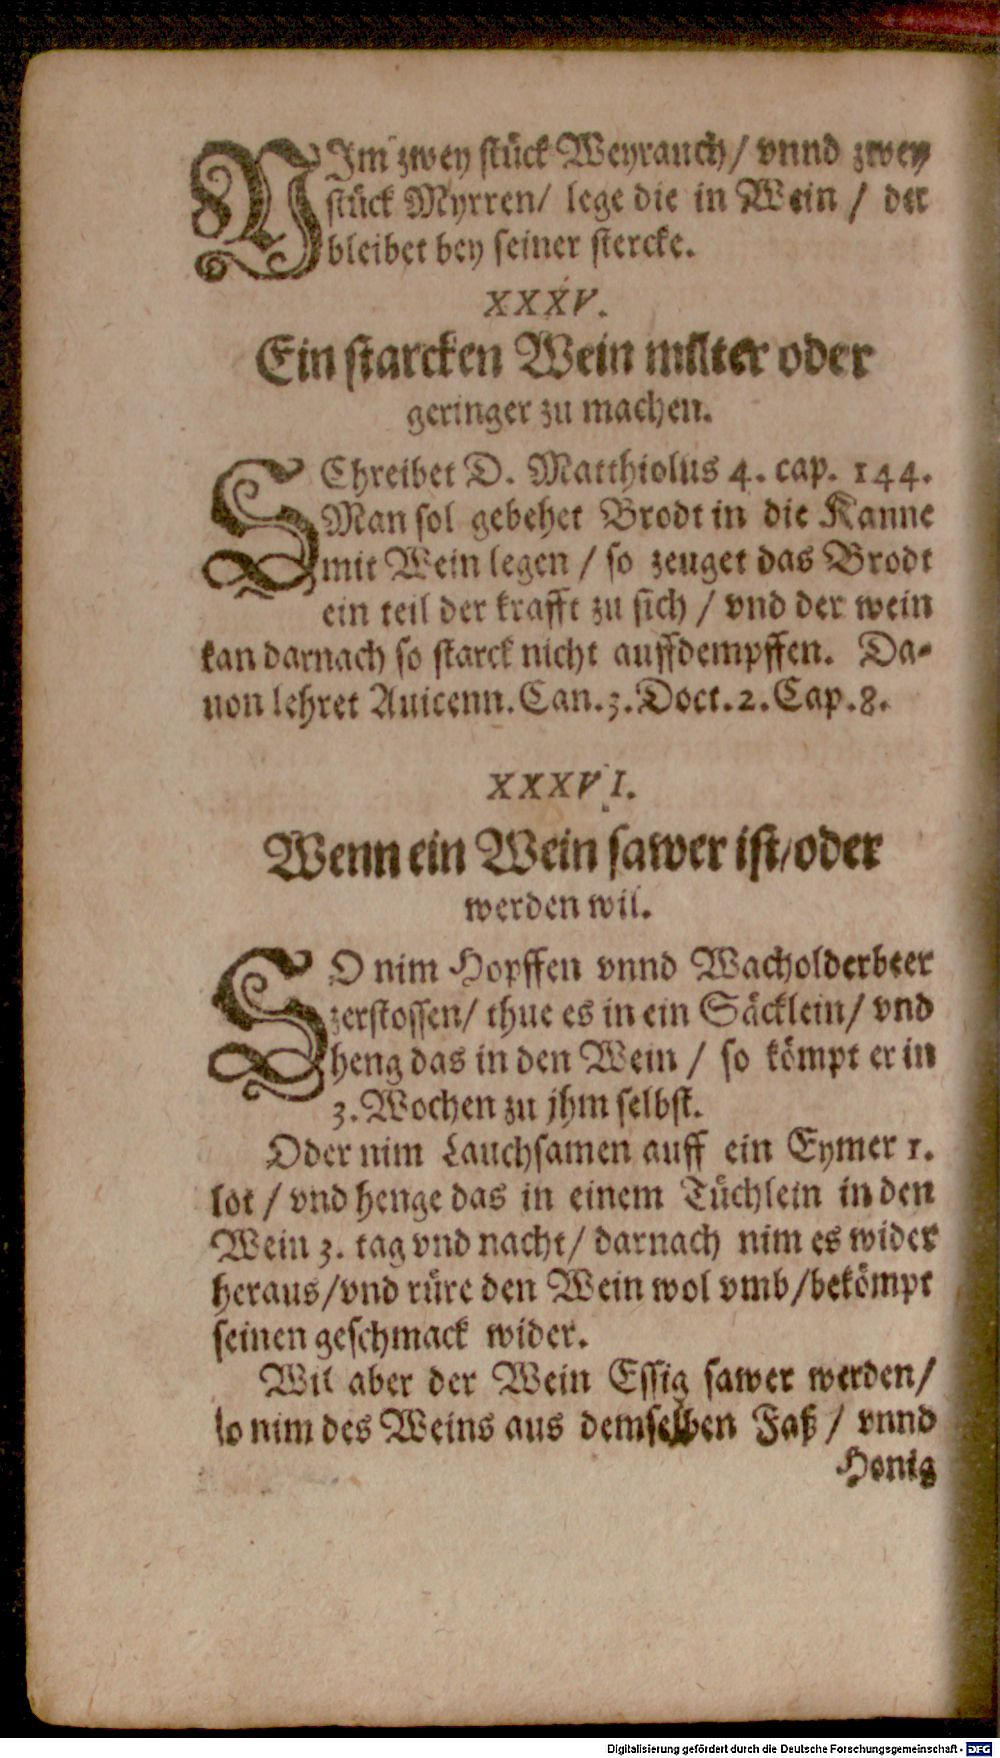 NIm zwey stück Weyrauch / vnnd zwey
stück Myrren / lege die in Wein / der
bleibet bey seiner stercke.
XXXV.
Ein starcken Wein milter oder
geringer zu machen.
SChreibet D. Matthiolus 4. cap. 144.
Man sol gebehet Brodt in die Kanne
mit Wein legen / so zeuget das Brodt
ein teil der krafft zu sich / vnd der wein
kan darnach so starck nicht auffdempffen. Da-
uon lehret Auicenn. Can. 3. Doct. 2. Cap. 8.
XXXVI.
Wenn ein Wein sawer ist / oder
werden wil.
SO nim Hopffen vnnd Wacholderbeer
zerstossen / thue es in ein Säcklein / vnd
heng das in den Wein / so kömpt er in
3. Wochen zu jhm selbst.
Oder nim Lauchsamen auff ein Eymer 1.
lot / vnd henge das in einem Tüchlein in den
Wein 3. tag vnd nacht / darnach nim es wider
heraus / vnd rüre den Wein wol vmb / bekömpt
seinen geschmack wider.
Wil aber der Wein Essig sawer werden /
so nim des Weins aus demselben Faß / vnnd
Honig
Digitalisierung gefördert durch die Deutsche Forschungsgemeinschaft - DFG